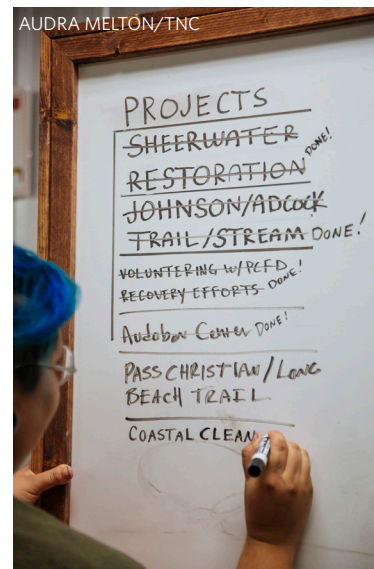 AUDRA MELTON/TNC
PROJECTS
SHEERWATER
RESTORATION DONE!
JOHNSON/ADCOCK
TRAIL/STREAM DONE!
VOLUNTERING W/PCFD
RECOVERY EFFORTS DONE!
Audobon Center DONE!
PASS CHRISTIAN/LONG
BEACH TRAIL
COASTAL CLEAN